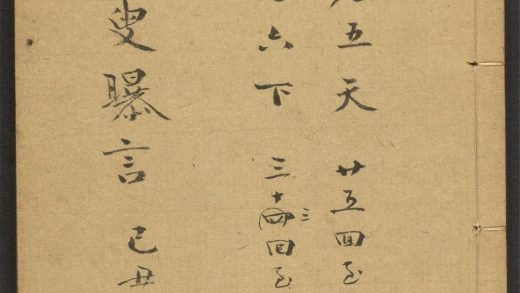 五天 廿五回至
六下 三十四三回至
叟曝言 己丑